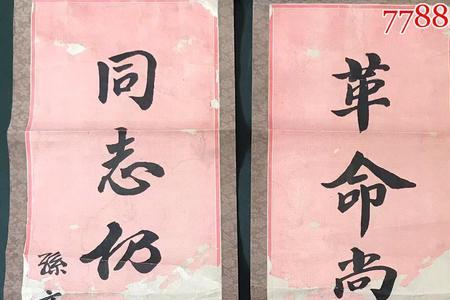 7788
革命尚
同志仍
孫文